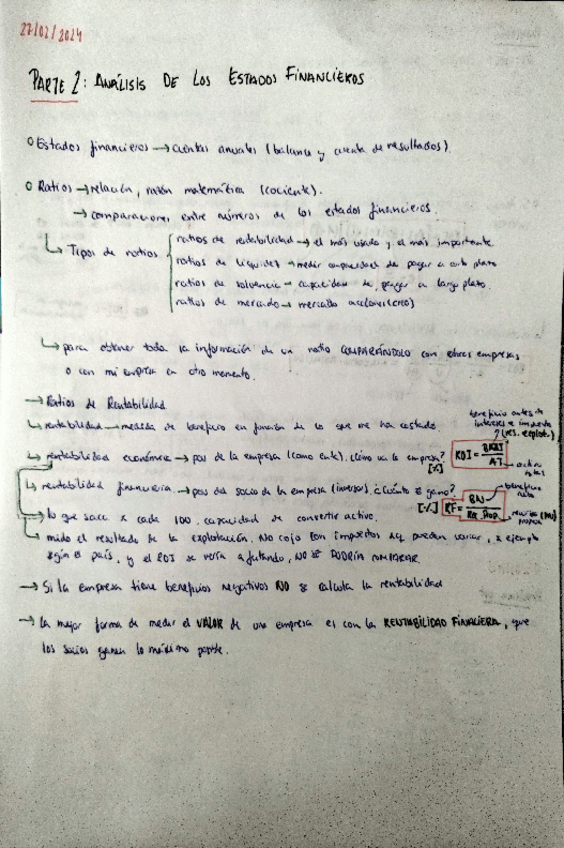 27/02/2024
PARTE 2: ANÁLISIS DE LOS ESTADOS FINANCIEROS
Estados financieros → cuentas anuales (balance y cuenta de resultados).
Ratios → relación, razón matemática (cociente).
→ comparaciones entre números de los estados financieros.
Tipos de ratios
ratios de rentabilidad → el más usado y el más importante
ratios de liquidez → medir capacidad de pagar a corto plazo
ratios de solvencia → capacidad de pagar a largo plazo.
ratios de mercado → mercado acciones
↳ para obtener toda la información de un ratio COMPARÁNDOLO con otras empresas
o con mi empresa en otro momento.
→ Ratios de Rentabilidad
↳ rentabilidad → medida de beneficio en función de lo que me ha costado.
beneficio antes de
intereses e impuestos
(res. explot.)
↳ rentabilidad económica → pov de la empresa (como ente). ¿Cómo va la empresa?
[%]
ROI = BAII / AT
activo
total
↳ rentabilidad financiera → pov del socio de la empresa (inversor). ¿Cuánto € gano?
[%]
RF = BN
beneficio
neto
→ lo que saca x cada 100. capacidad de convertir activo.
→ mido el resultado de la explotación. No cojo con impuestos xq pueden variar, x ejemplo
según el país, y el ROI se vería afectado, NO SE PODRÍA COMPARAR.
→ Si la empresa tiene beneficios negativos NO se calcula la rentabilidad
→ la mejor forma de medir el VALOR de una empresa es con la RENTABILIDAD FINACIERA, que
los socios ganen lo máximo posible.